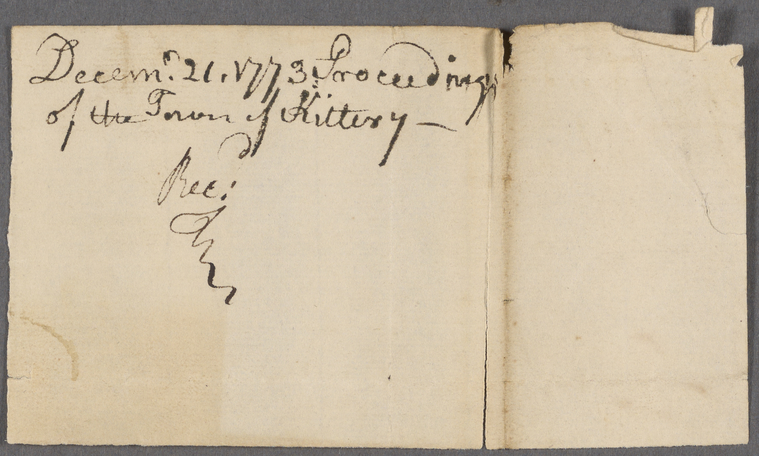 Decemr. 21. 1773. Proceedings
of the Town of Kittery —
Recd.